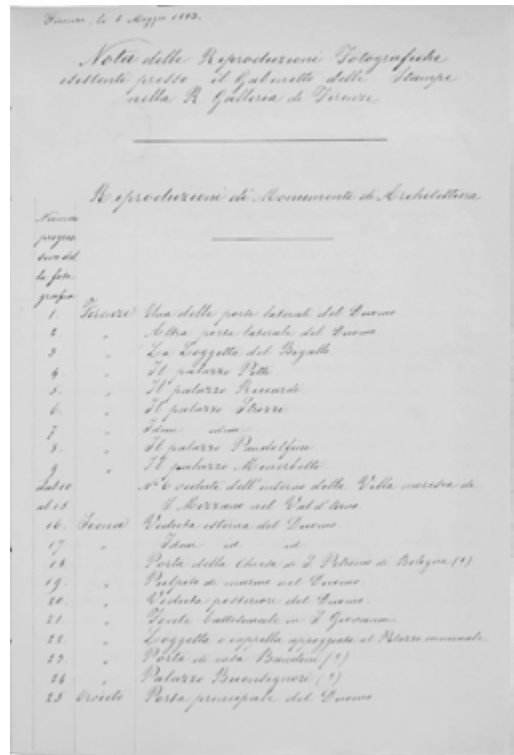 Firenze, li 6 Maggio 1893.
Nota delle Riproduzioni Fotografiche
esistenti presso il Gabinetto delle Stampe
nella R. Galleria di Firenze
Riproduzioni di Monumenti di Architettura
Numero
progres
sivo del
la foto
grafia
1. Firenze Una delle porte laterali del Duomo
2. " Altra porta laterale del Duomo
3 " La Loggetta del Bigallo
4 " Il palazzo Pitti
5. " Il palazzo Riccardi
6. " Il palazzo Strozzi
7 " Idem idem
8. " Il palazzo Pandolfini
9 " Il palazzo
dal 10 " N° 6 vedute dell'interno della Villa moresca di
al 15 S. Mezzano nel Val d'Arno
16. Siena Veduta esterna del Duomo
17. " Idem id. id.
18 " Porta della Chiesa di S. Petronio di Bologna (?)
19. " Pulpito di marmo nel Duomo
20. " Veduta posteriore del Duomo
21. " Fonte battesimale in S. Giovanni
22. " Loggetta o cappella appoggiata al Palazzo comunale
23 " Porta di casa Bandini (?)
24 " Palazzo Buonsignori (?)
25 Orvieto Porta principale del Duomo